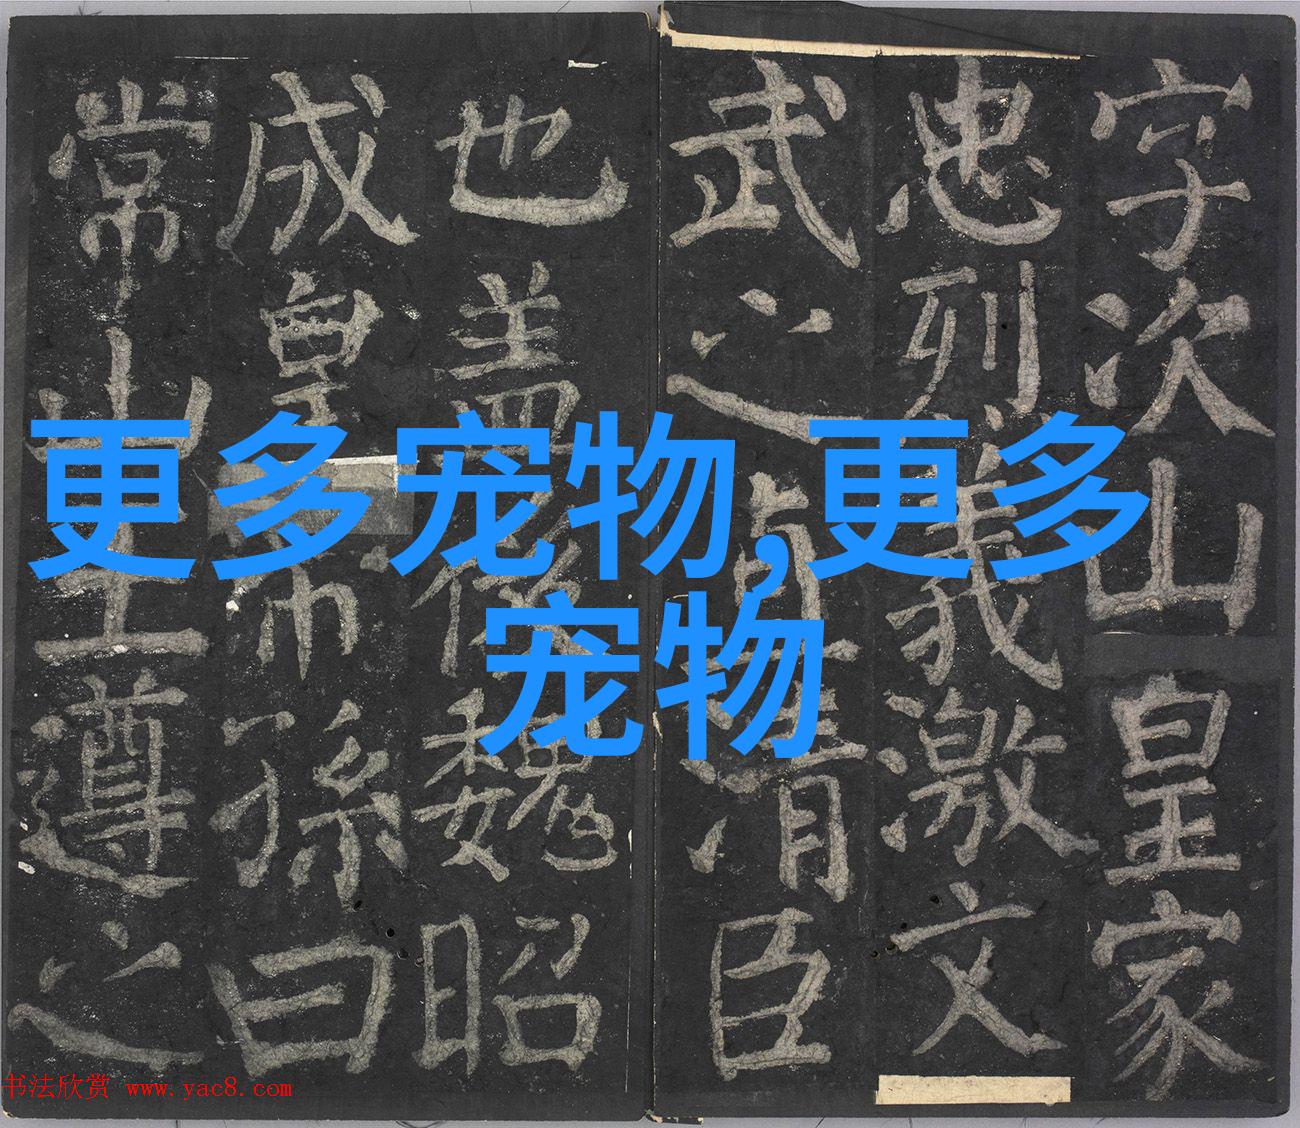 更多宠物,更多
宠物
字次山皇家
忠烈義激文
武之直清臣
也盖後魏昭
成皇帝孫曰
常山王遵之
书法欣赏 www.yac8.com